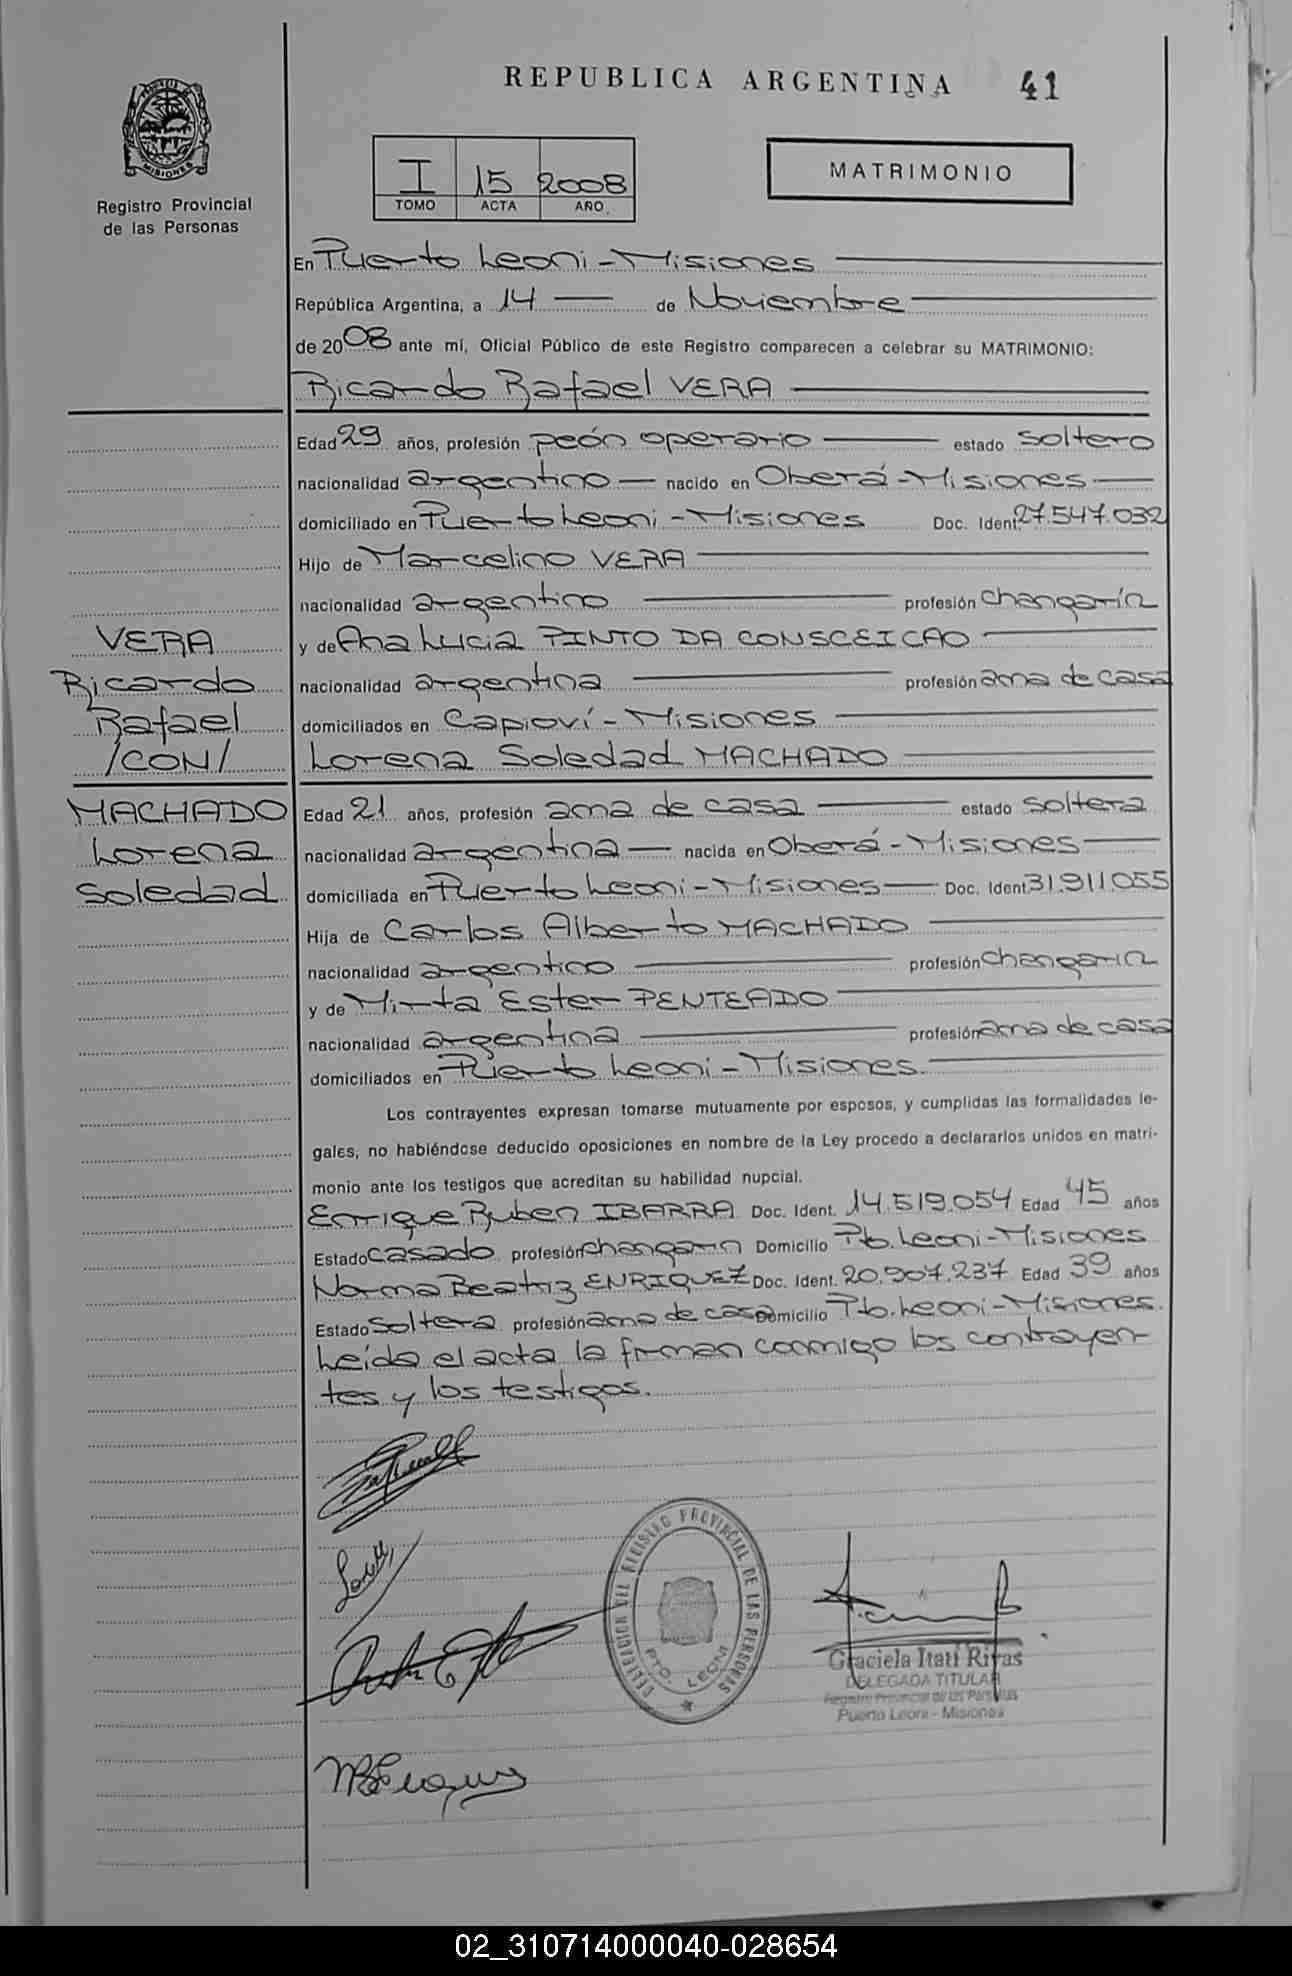 REPUBLICA ARGENTINA 41
MISIONES
Registro Provincial
de las Personas
I 15 2008
TOMO ACTA AÑO
MATRIMONIO
En Puerto Leoni - Misiones
República Argentina, a 14 de Noviembre
de 2008 ante mí, Oficial Público de este Registro comparecen a celebrar su MATRIMONIO:
Ricardo Rafael VERA
Edad 29 años, profesión peón operario estado soltero
nacionalidad argentino nacido en Oberá - Misiones
domiciliado en Puerto Leoni - Misiones Doc. Ident. 27.547.032
Hijo de Marcelino VERA
nacionalidad argentino profesión changarín
y de Ana Lucia PINTO DA CONSCEICAO
nacionalidad argentina profesión ama de casa
domiciliados en Capioví - Misiones
Lorena Soledad MACHADO
VERA
Ricardo
Rafael
/CON/
MACHADO
Lorena
Soledad
Edad 21 años, profesión ama de casa estado soltera
nacionalidad argentina nacida en Oberá - Misiones
domiciliada en Puerto Leoni - Misiones Doc. Ident. 31.911.055
Hija de Carlos Alberto MACHADO
nacionalidad argentino profesión changarin
y de Mirta Ester PENTEADO
nacionalidad argentina profesión ama de casa
domiciliados en Puerto Leoni - Misiones.
Los contrayentes expresan tomarse mutuamente por esposos, y cumplidas las formalidades le-
gales, no habiéndose deducido oposiciones en nombre de la Ley procedo a declararlos unidos en matri-
monio ante los testigos que acreditan su habilidad nupcial.
Enrique Ruben IBARRA Doc. Ident. 14.519.054 Edad 45 años
Estado casado profesión changarin Domicilio Pto. Leoni - Misiones
Norma Beatriz ENRIQUEZ Doc. Ident. 20.907.237 Edad 39 años
Estado soltera profesión ama de casa Domicilio Pto. Leoni - Misiones.
Leída el acta la firman conmigo los contrayen-
tes y los testigos.
DELEGACION DEL REGISTRO PROVINCIAL DE LAS PERSONAS
PTO. LEONI
Graciela Itatí Rivas
DELEGADA TITULAR
Registro Provincial de las Personas
Puerto Leoni - Misiones
02_310714000040-028654